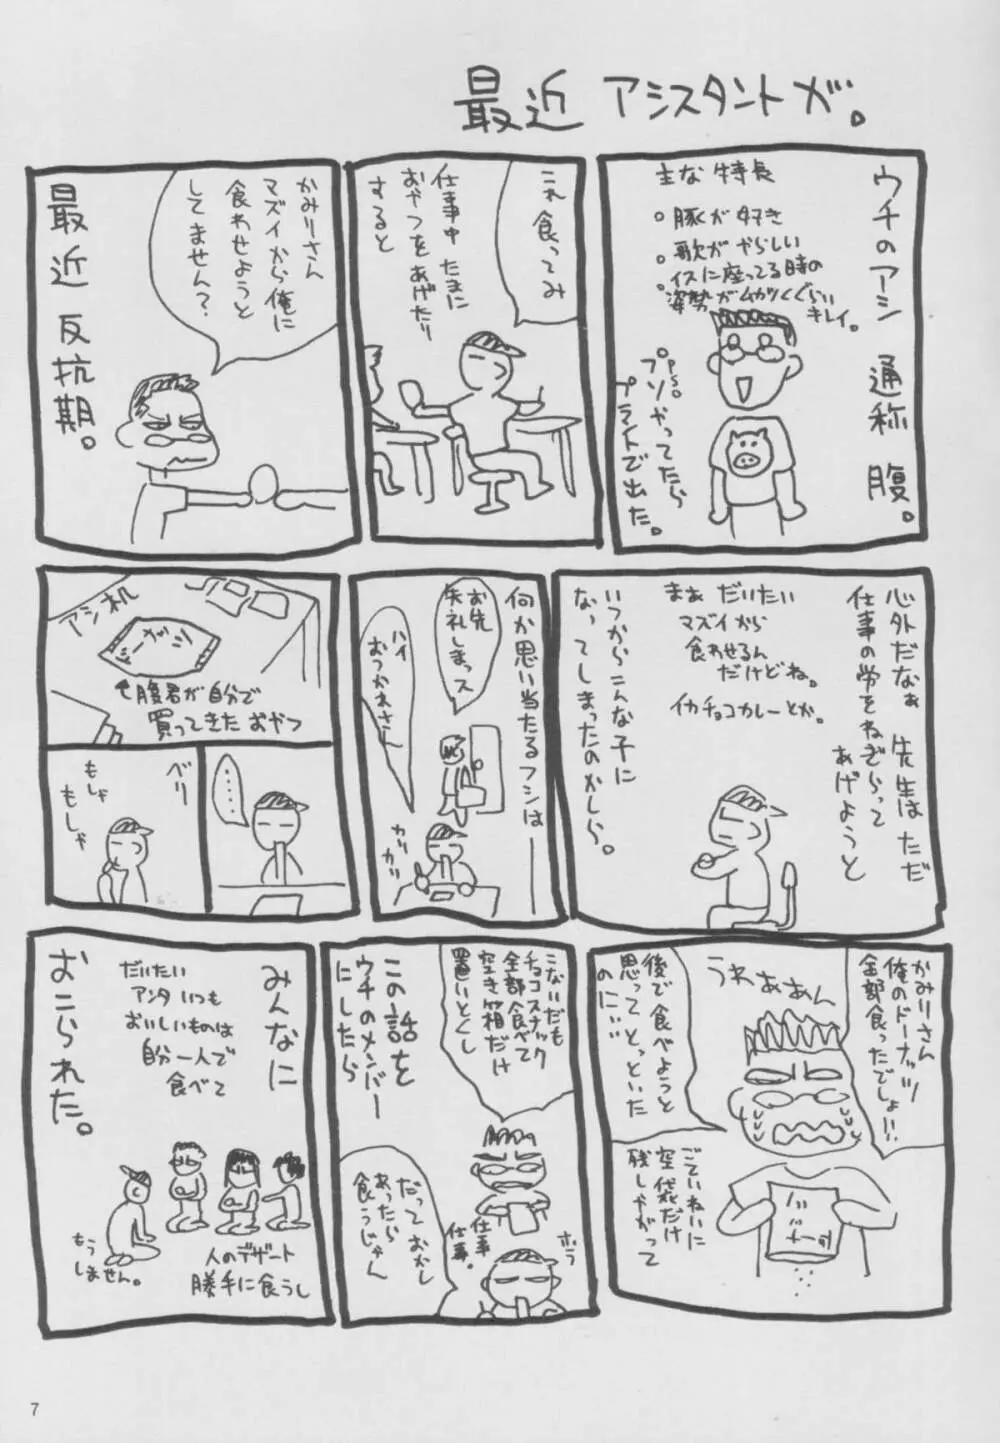 最近 アシスタントが。
ウチのアシ 通称 腹。
主な特長
。豚が好き
。歌がやらしい
。イスに座ってる時の
姿勢がムカツくぐらい
キレイ。
P.S.
プソやってたら
プラントで出た。
これ食ってみ
仕事中 たまに
おやつをあげたり
すると
かみりさん
マズイから俺に
食わせようと
してません?
最近 反抗期。
心外だなぁ 先生はただ
仕事の労をねぎらって
あげようと
まぁ だいたい
マズイから
食わせるん
だけどね。
イカチョコカレーとか。
いつからこんな子に
なってしまったのかしら。
何か思い当たるフシは
お先
失礼しまっス
ハイ
おつかれさん
カリ
カリ
アシ机
シーガシ
腹君が自分で
買ってきた おやつ
・・・・
ベリー
もしゃ
もしゃ
かみりさん
俺のドーナッツ
全部食ったでしょ!!
うわぁあん
後で食べようと
思って とっといた
のに…
ごていねいに
空袋だけ
残しやがって
ドーナツ
こないだも
チョコスナック
全部食べて
空き箱だけ
置いとくし
この話を
ウチのメンバー
にしたら
だって おかし
あったら
食うじゃん
仕事。
仕事
ホラ
みんなに
だいたい
アンタ いつも
おいしいものは
自分一人で
食べて
おこられた。
人のデザート
勝手に食うし
もう
しません。
7